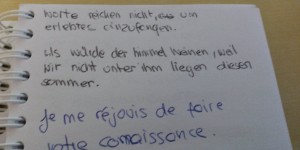 Worte reichen nicht, um
erlebtes einzufangen.
Als würde der himmel weinen, weil
wir nicht unter ihm liegen diesen
sommer.
Je me réjouis de faire
votre connaissance.